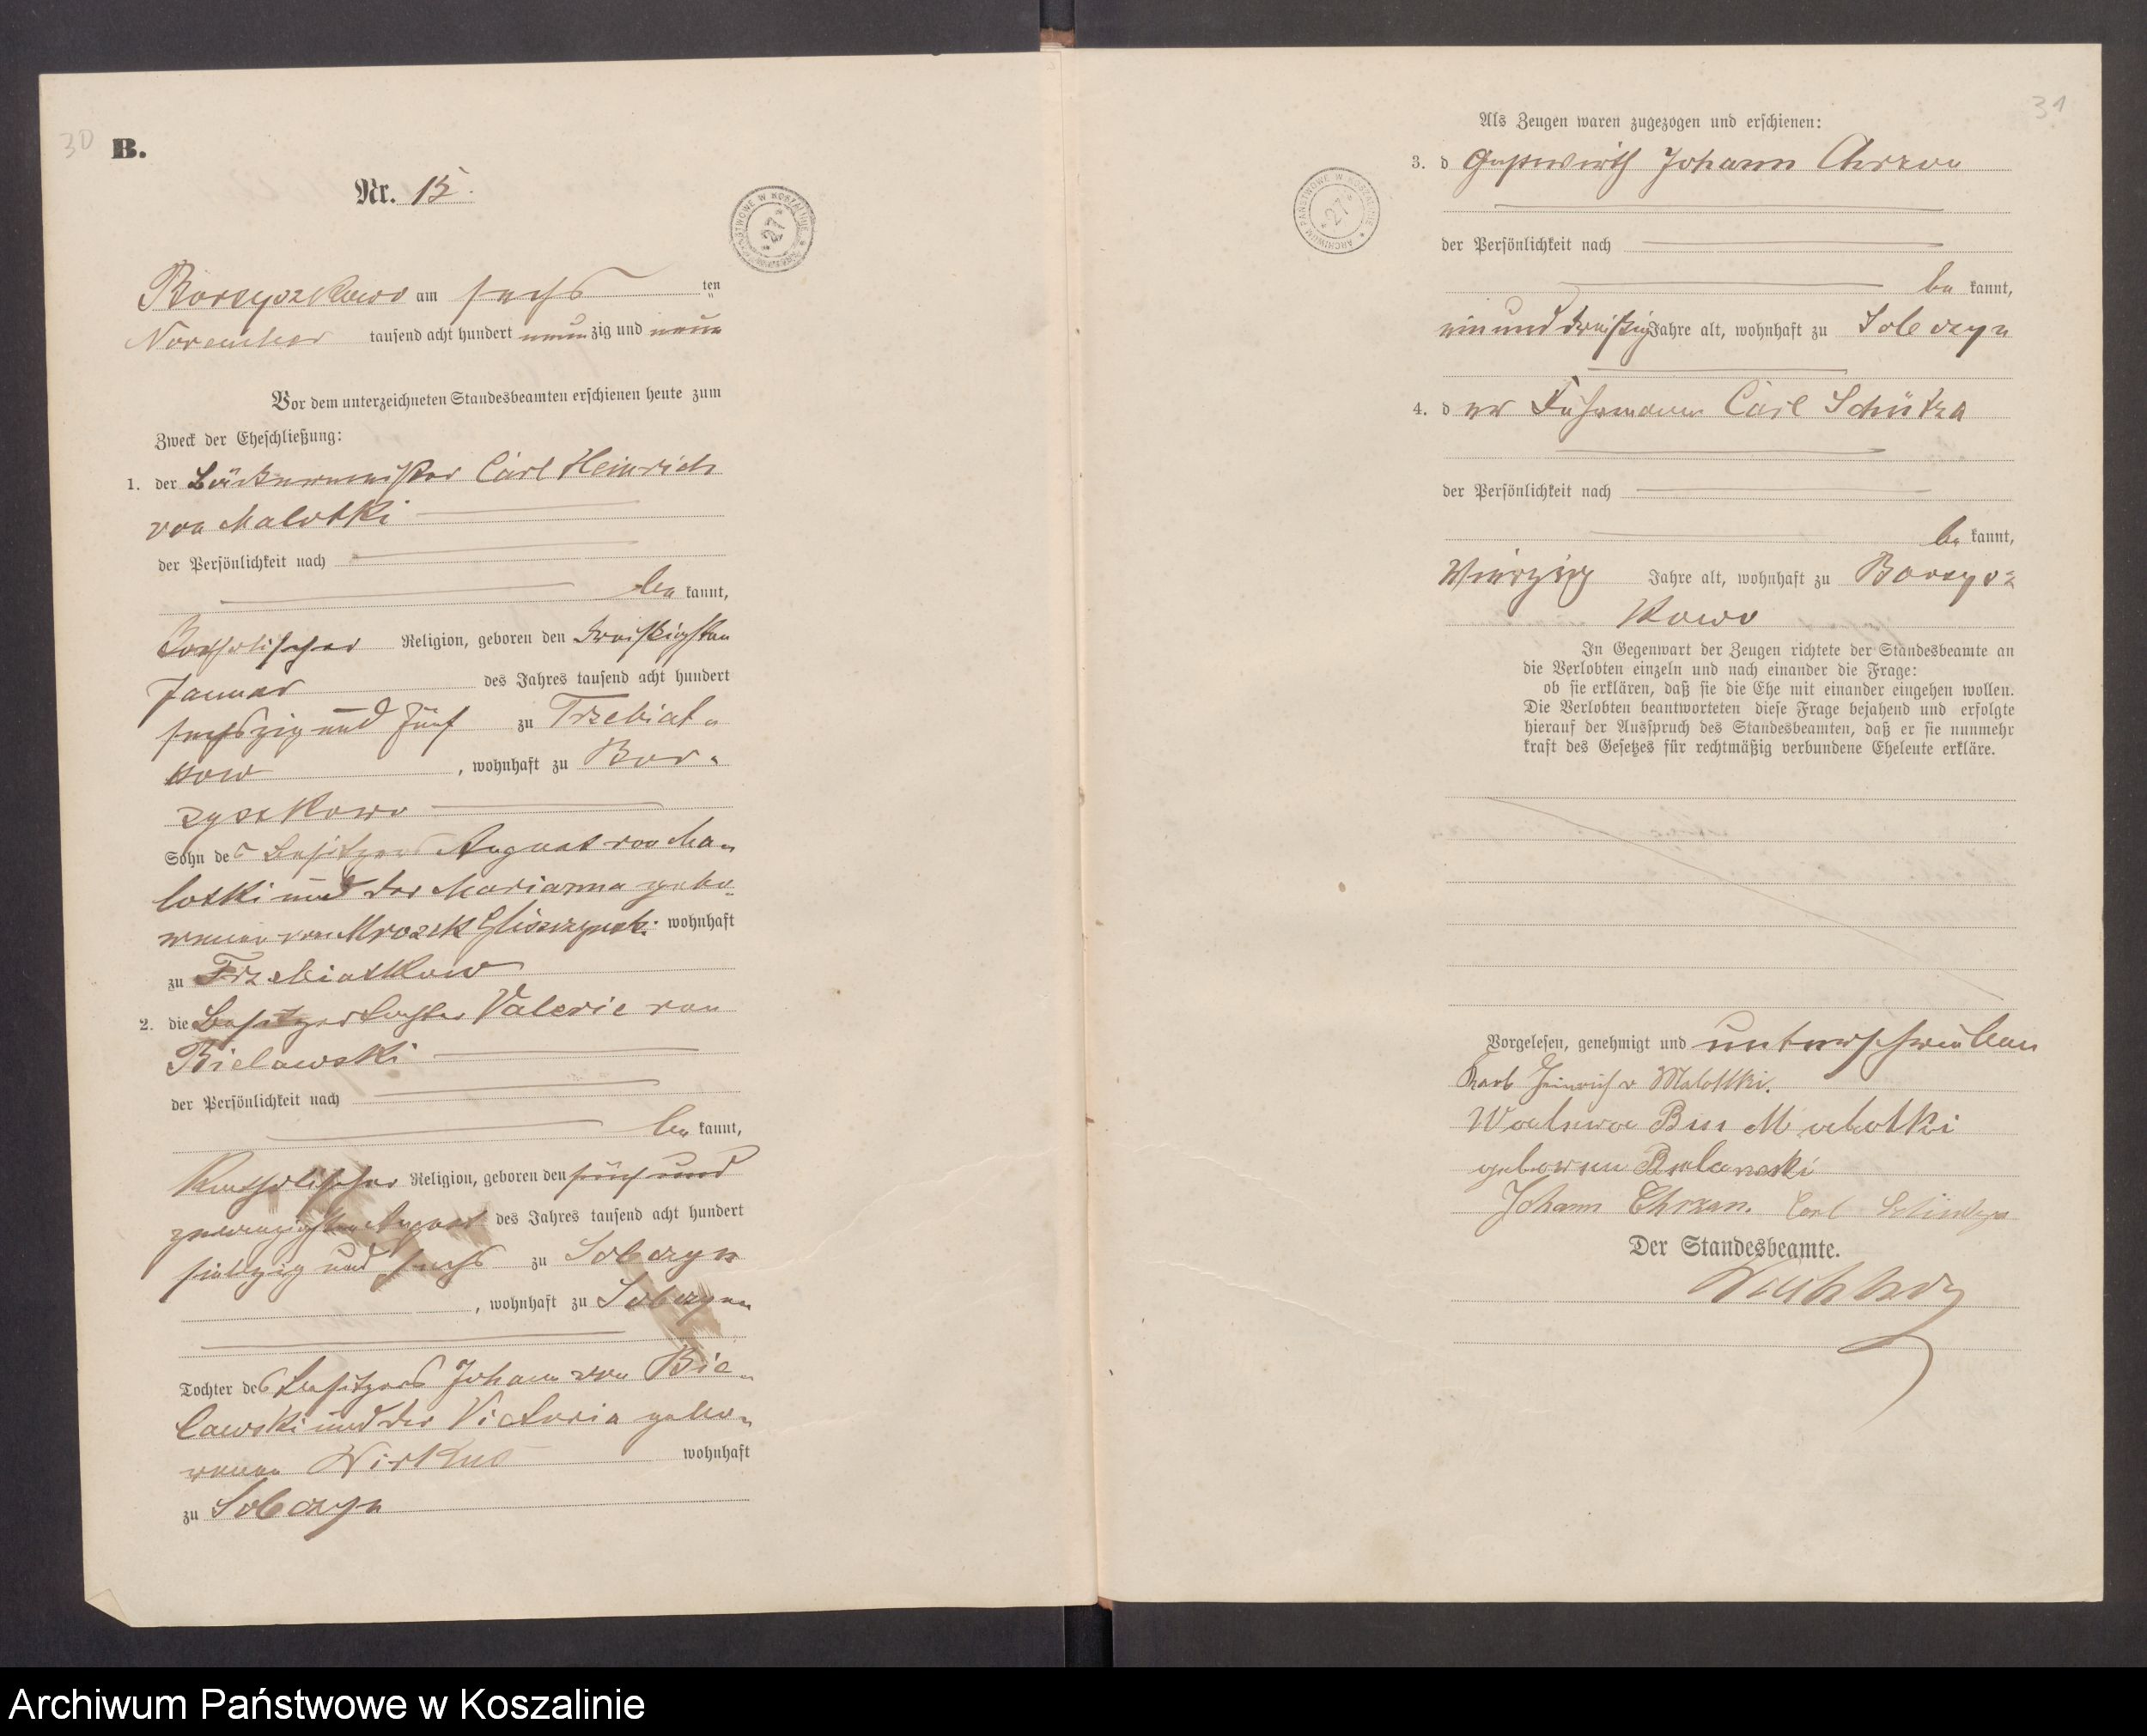 30
B.
Nr. 15.
ARCHIWUM PAŃSTWOWE W KOSZALINIE * 27 *
Borzyszkowo am sechs ten
November tausend acht hundert neunzig und neun
Vor dem unterzeichneten Standesbeamten erschienen heute zum
Zweck der Eheschließung:
1. der Bäckermeister Carl Heinrich
von Malotki
der Persönlichkeit nach
be kannt,
katholischer Religion, geboren den dreißigsten
Januar des Jahres tausend acht hundert
sechszig und fünf zu Trzebiat-
kow, wohnhaft zu Bor-
zyszkowo
Sohn des Besitzers August von Ma-
lotki und der Marianna gebo-
renen von Mrozek Gliszczynski wohnhaft
zu Trzebiatkow
2. die Besitzertochter Valerie von
Bielawski
der Persönlichkeit nach
be kannt,
katholischer Religion, geboren den fünf und
zwanzigsten August des Jahres tausend acht hundert
siebzig und sechs zu Sobczyn
, wohnhaft zu Sobczyn
Tochter des Besitzers Johann von Bie-
lawski und der Victoria gebo-
renen Wirkus wohnhaft
zu Sobczyn
31
Als Zeugen waren zugezogen und erschienen:
ARCHIWUM PAŃSTWOWE W KOSZALINIE * 27 *
3. d Gastwirth Johann Chrzan
der Persönlichkeit nach
be kannt,
ein und dreißig Jahre alt, wohnhaft zu Sobczyn
4. d er Fuhrmann Carl Schütza
der Persönlichkeit nach
be kannt,
Vierzig Jahre alt, wohnhaft zu Borzysz
kowo
In Gegenwart der Zeugen richtete der Standesbeamte an
die Verlobten einzeln und nach einander die Frage:
ob sie erklären, daß sie die Ehe mit einander eingehen wollen.
Die Verlobten beantworteten diese Frage bejahend und erfolgte
hierauf der Ausspruch des Standesbeamten, daß er sie nunmehr
kraft des Gesetzes für rechtmäßig verbundene Eheleute erkläre.
Vorgelesen, genehmigt und unterschrieben
Karl Heinrich v Malottki.
Malotki
geboren
Johann Chrzan. Carl
Der Standesbeamte.
Archiwum Państwowe w Koszalinie